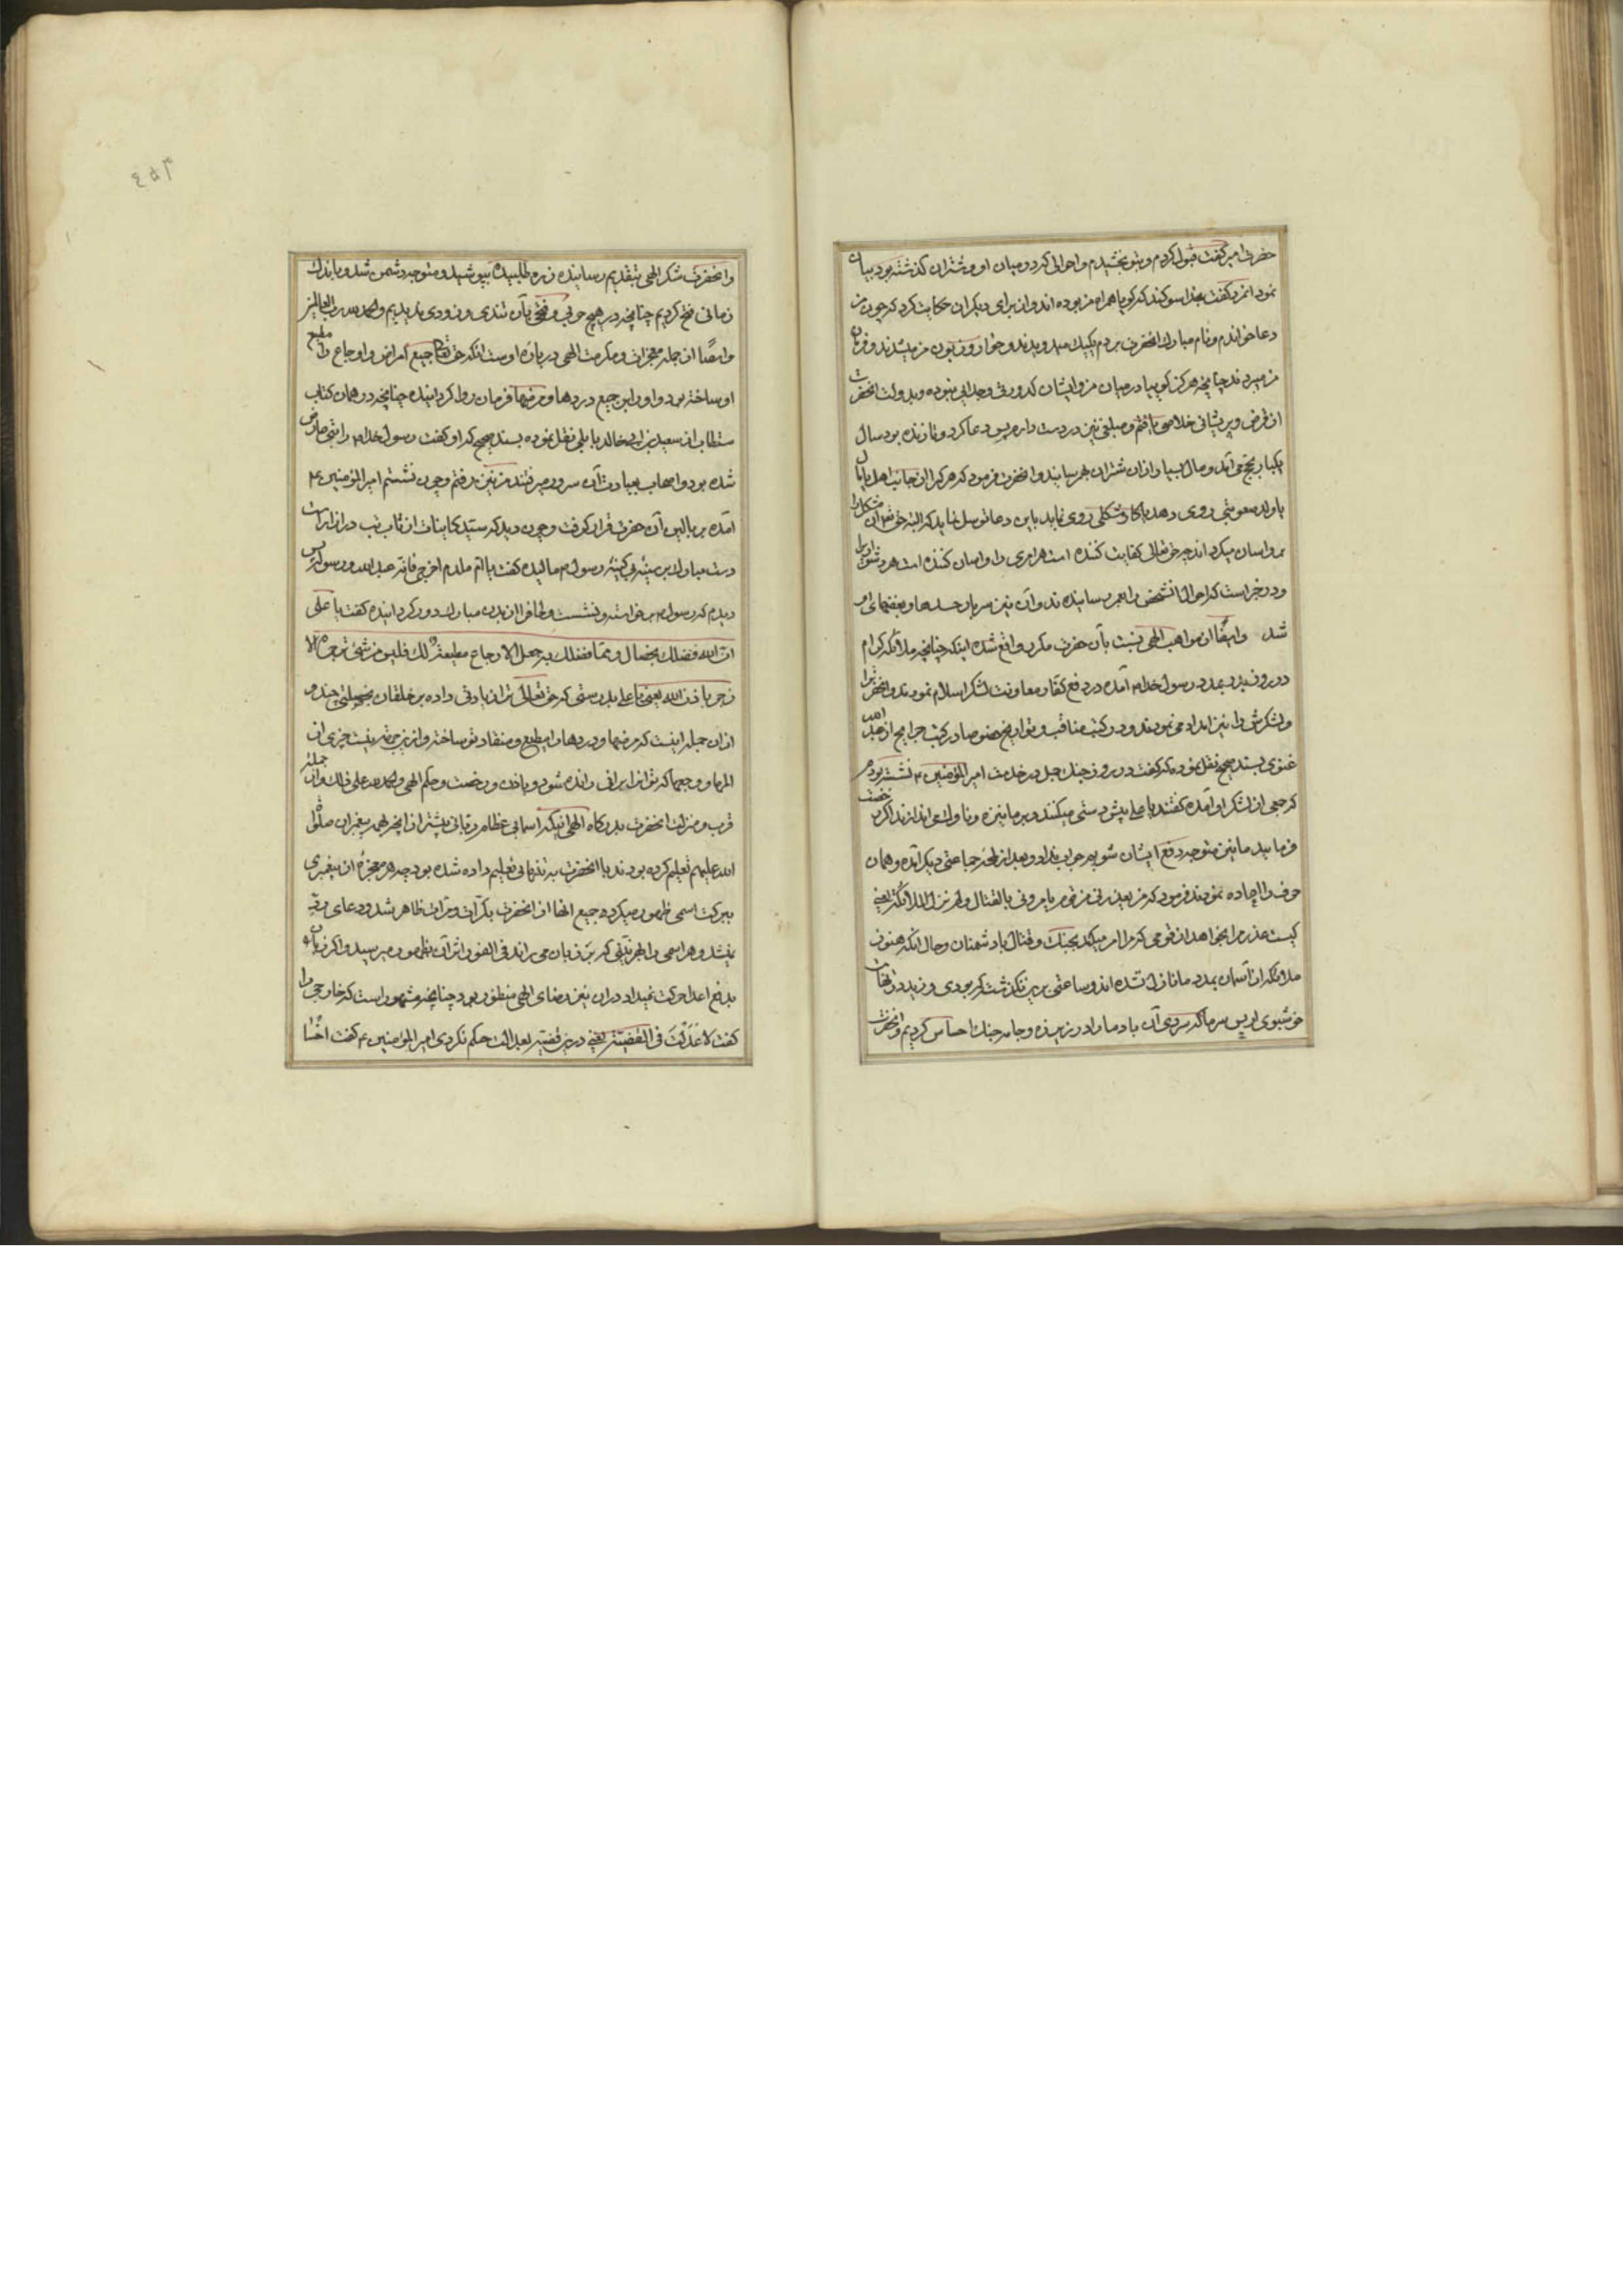 حضرت امیر گفت قبول کردم و بتو بخشیدم و احوالی که در میان او و شتران گذشته بود بیان
نمود انمرد گفت بخدا سوکند که کویا همراه من بوده اند و ان برای دیکران حکایت کرد که چون من
دعا خواندم و نام مبارک انحضرت بردم یکیک میدویدند و خوار و زبون من میشدند و فرمان
من میبردند چنانچه هرکز کویا در میان من و ایشان کدورتی و جدایی نبوده و بدولت انحضرت
از قرض و پریشانی خلاصی یافتم و مبلغی نیز در دست دارم پس دعا کرد و تا زنده بود سال
یکبار بحج می آمد و مال بسیار از ان شتران بهم رسانید و انحضرت فرمود که هرکرا از جانب اهل یا مال
یا ولد صعوبتی روی دهد یا کار مشکلی روی نماید باین دعا توسل نماید که البته حق تعالی ان مشکل را
برو اسان میکرداند چه حق تعالی کفایت کننده است هر امری را و اسان کننده است هر دشواریرا
و در خبر است که احوال انشخص را بعمر رسانیده ند و آن نیز سربار حسدها و بغضهای او
شد وایضًا از مواهب الهی نسبت بآن حضرت مکرر واقع شده اینکه چنانچه ملائکه کرام
در روز بدر بمدد رسول خدا م آمده در دفع کفار و معاونت لشکر اسلام نمودند و انحضرت را
و لشکرش را نیز امداد می نمودند و در کتب مناقب و تواریخ خصوصا در کتب جرایح از عبدالله
غنوی بسند صحیح نقل نموده که گفت در روز جنک جمل در خدمت امیر المؤمنین ع نشسته بودم
که جمعی از لشکر او آمده کفتند یا علی پیش دستی میکنند و بر ما نیزه و ناوک می اندازند اکر رخصت
فرمایید ما نیز متوجه دفع ایشان شویم جواب نداد و بعد از لحظه جماعتی دیکر آمده و همان
حرف را اعاده نمودند فرمود که من یعذرنی من قوم یامرونی بالقتال و لم تنزل الملائکة یعنی
کیست عذر مرا بخواهد از قومی که مرا امر میکند بجنک و قتال با دشمنان و حال آنکه هنوز
ملائکه از آسمان بمدد ما نازل نشده اند و ساعتی برین نکذشت که بودی وزید در نهایت
خوشبوی او پس سرما که سردی آن باد ما را در زیر زره و جامه جنک احساس کردیم و انحضرت
وانحضرت شکر الهی بتقدیم رسانیده زره طلبیده بپوشید و متوجه دشمن شد و باندک
زمانی فتح کردیم چنانچه در هیچ حربی و فتحی بآن تندی و زودی ندیدیم والحمد لله رب العالمین
وایضًا از جمله معجزات و مکرمت الهی در باره اوست انکه حق تعالی جمیع امراض و اوجاع را مطیع
او ساخته بود و او را بر جمیع دردها و مرضها فرمان روا کردانیده چنانچه در همان کتاب
مستطاب از سعید بن ابی خالد باهلی نقل نموده بسند صحیح که او کفت رسول خدا م را تبی عارض
شده بود و اصحاب بعیادت آن سرور میرفتند من نیز برفتم و چون نشستم امیر المؤمنین ع
آمده بر بالین آن حضرت قرار کرفت و چون دید که سید کاینات از تاب تب در ازار است
دست مبارک بر سینه بی کینه رسول م مالیده کفت یا ام ملدم اخرجی فانه عبد الله و رسوله پس
دیدم که رسول م برخواسته و نشست و لحاف را از بدن مبارک دور کردانیده کفت یا علی
ان الله فضلک بخصال و مما فضلک به جعل الاوجاع مطیعة لک فلیس من شیء تزجره الا
زجر باذن الله یعنی یا علی بدرستی که حق تعالی ترا زیادتی داده بر خلقان بخصلتی چند و
از ان جمله اینست که مرضها و دردها را مطیع و منقاد تو ساخته و از نیز جمله نیست چیزی از
المها و وجعها که تو انرا برانی رانده شود و باذن و رخصت و حکم الهی والحمد لله علی ذلک و از جمله
قرب و منزلت انحضرت بدرکاه الهی انیکه اسمائی عظام ربانی پیشتر از انچه بهر پیغمبران صلوات
الله علیهم تعلیم کرده بودند با انحضرت به تنهائی تعلیم داده شده بود چه هر معجزهٔ از پیغمبری
ببرکت اسمی ظهور میکرده جمیع انها از انحضرت بکرّات و مرّات ظاهر شد و دعای
نشد و هر اسمی را بهر نیّتی که بر زبان می راند فی الفور اثر آن بظهور میرسید و اکر زبان
بدفع اعدا حرکت نمیداد در ان نیز رضای الهی منظور بود چنانچه مشهور است که خارجی را
کفت لا عَدَلْتَ فی القضیّة یعنی درین قضیّه بعدالت حکم نکردی امیر المؤمنین ع کفت اخْسَا
۴۵۳